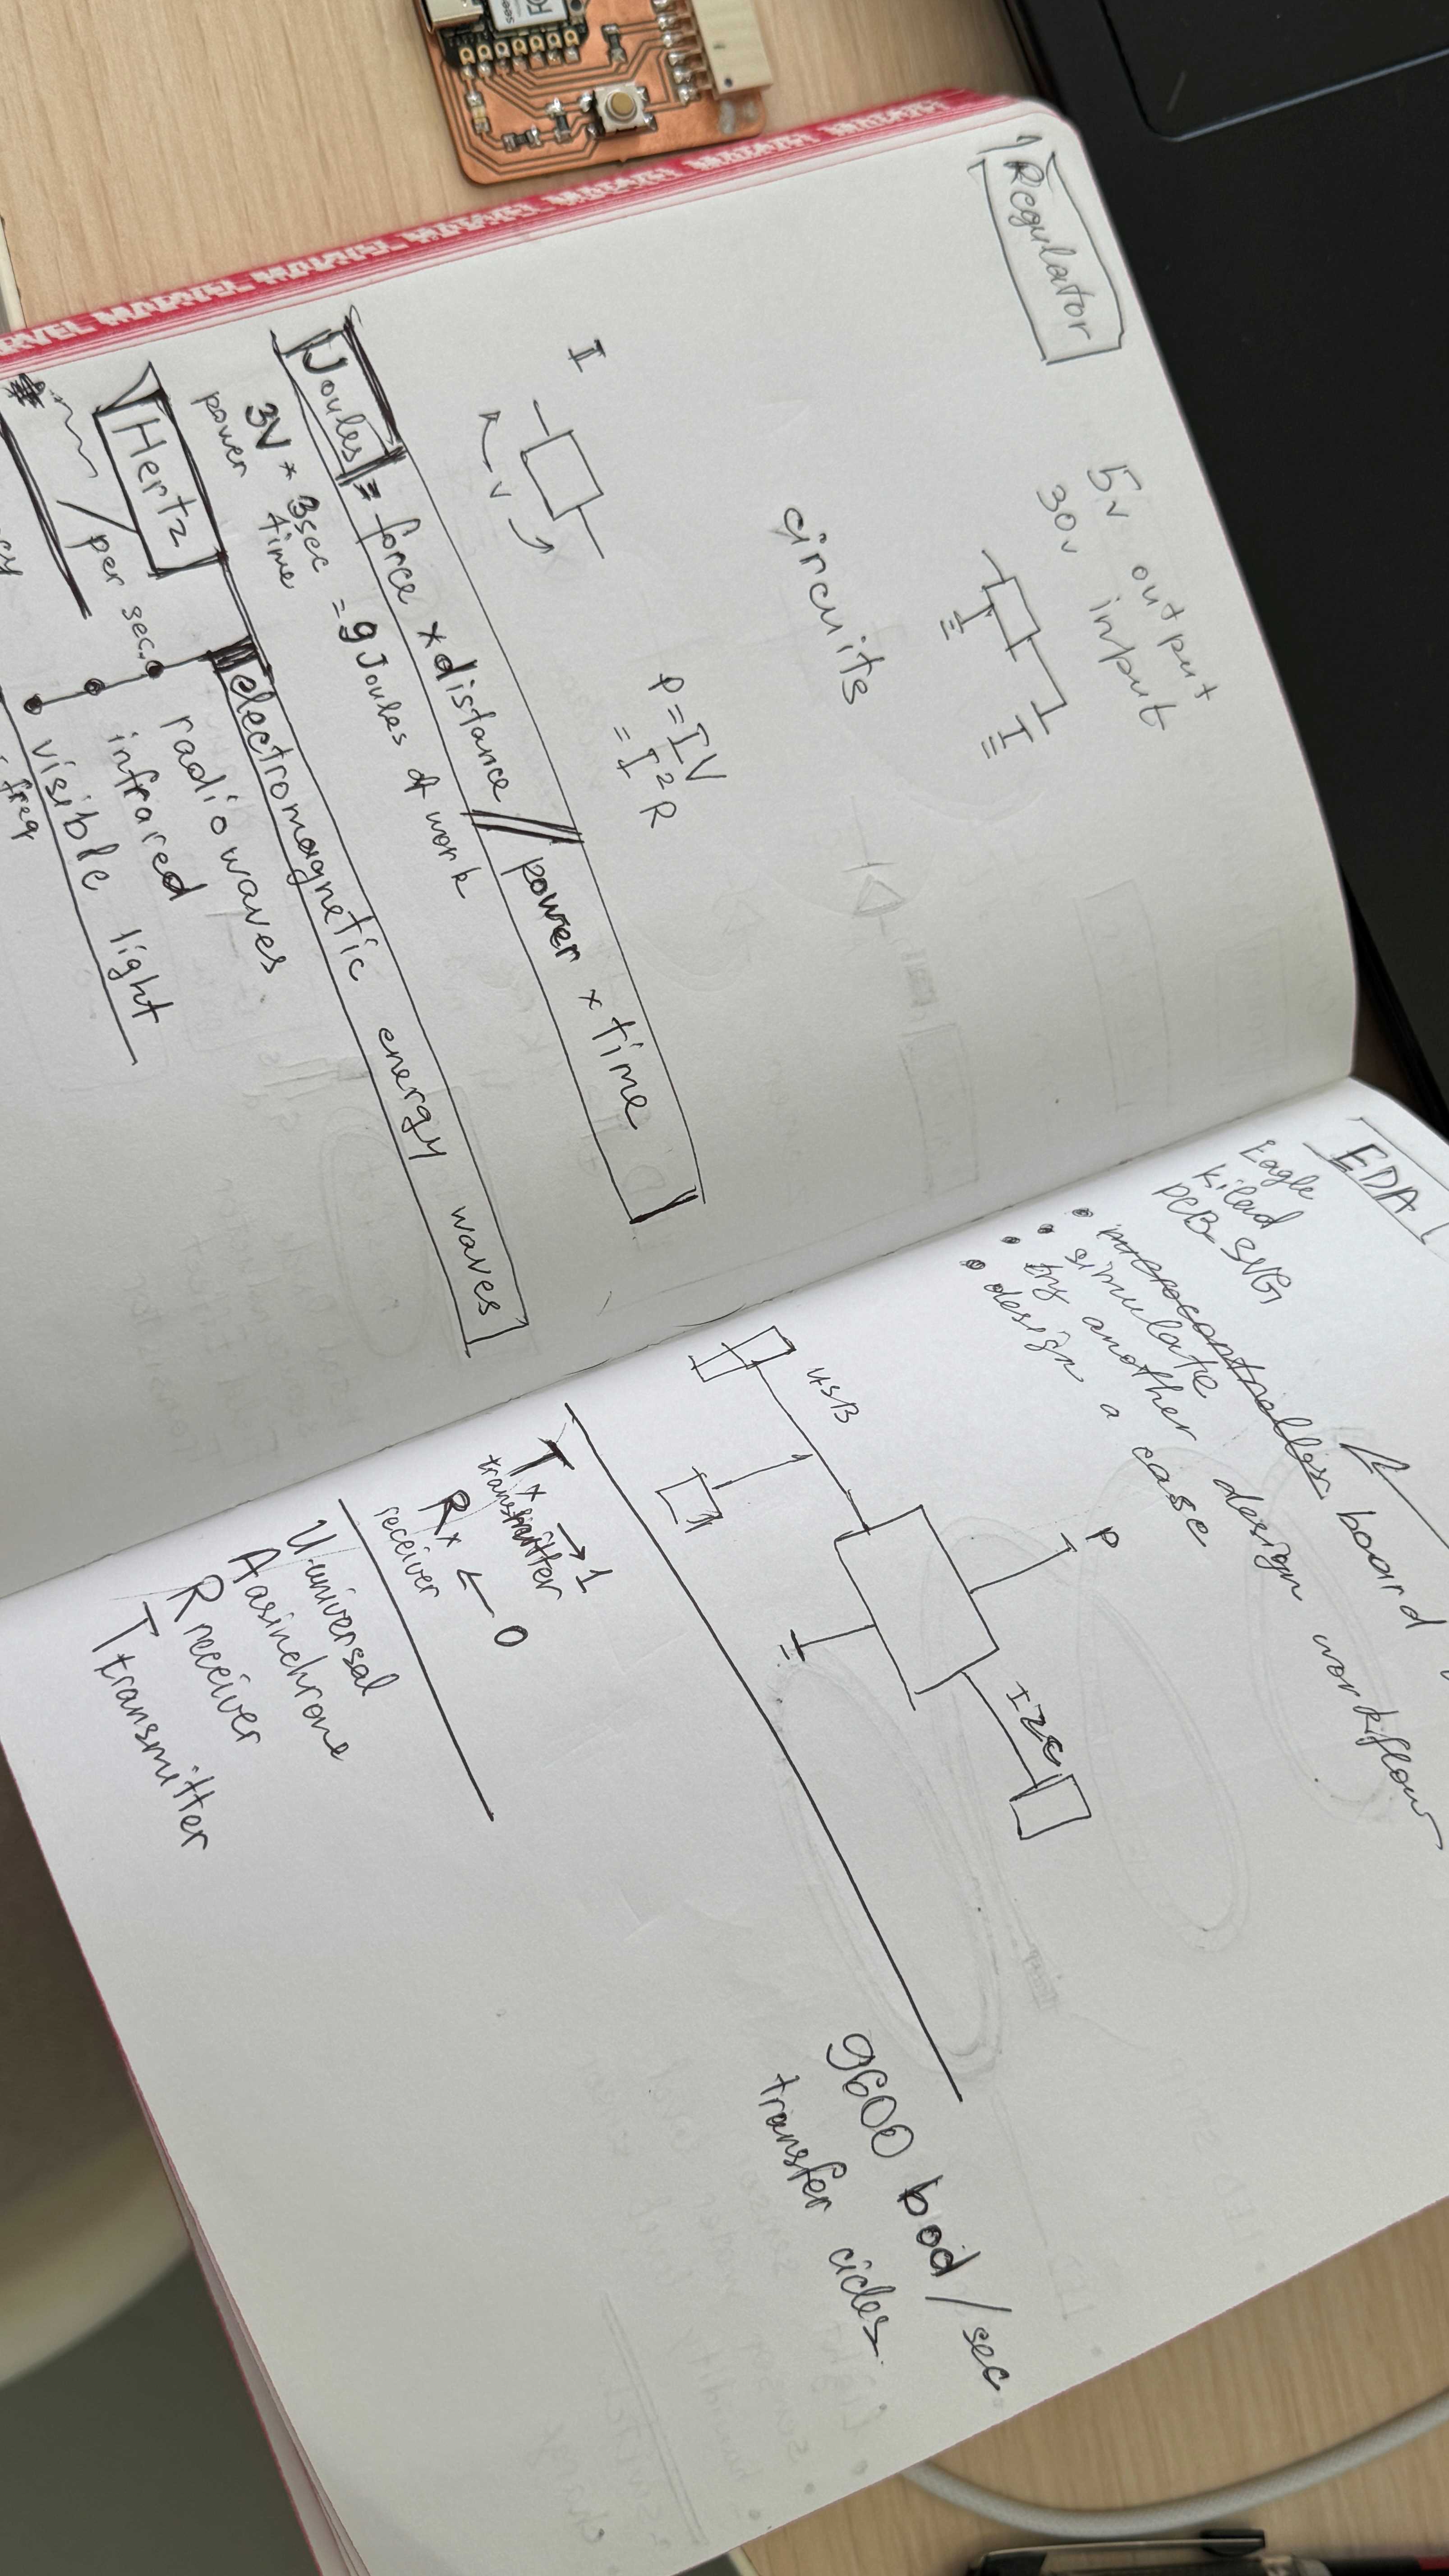 Regulator
5v output
30v input
circuits
P = IV
= I² R
I
V
Joules = force × distance // power × time
3V * 3sec = 9 Joules of work
power time
Hertz
/per sec.
electromagnetic energy waves
radio waves
infrared
visible light
freq
EDA
Eagle
kilad
PCB-SVG
microcontroller board
simulate
try another design workflow
design a case
P
I2C
USB
9600 bod/sec
transfer cicles.
Tx → 1
transmitter
Rx ← 0
receiver
U-universal
A asinchrone
R receiver
T transmitter
see